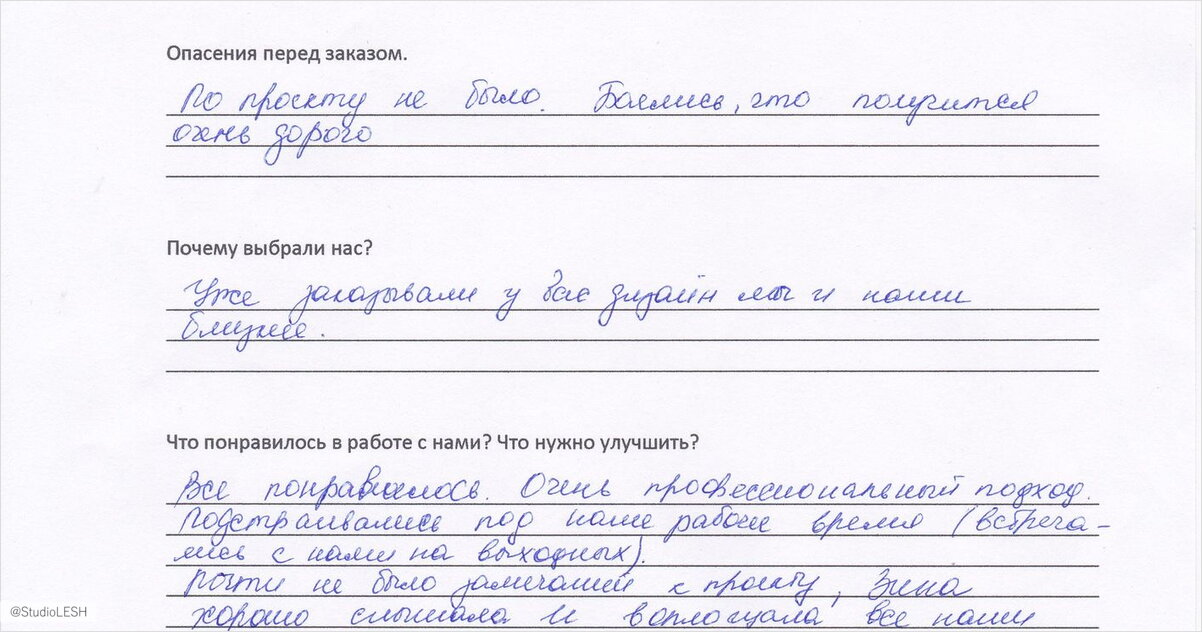 Опасения перед заказом.
По проекту не было. Боялись, что получится
очень дорого
Почему выбрали нас?
Уже заказывали у вас дизайн мы и наши
близкие.
Что понравилось в работе с нами? Что нужно улучшить?
Все понравилось. Очень профессиональный подход.
Подстраивались под наше рабочее время (встреча-
лись с нами на выходных).
Почти не было замечаний к проекту, Зина
хорошо слышала и воплощала все наши
@StudioLESH